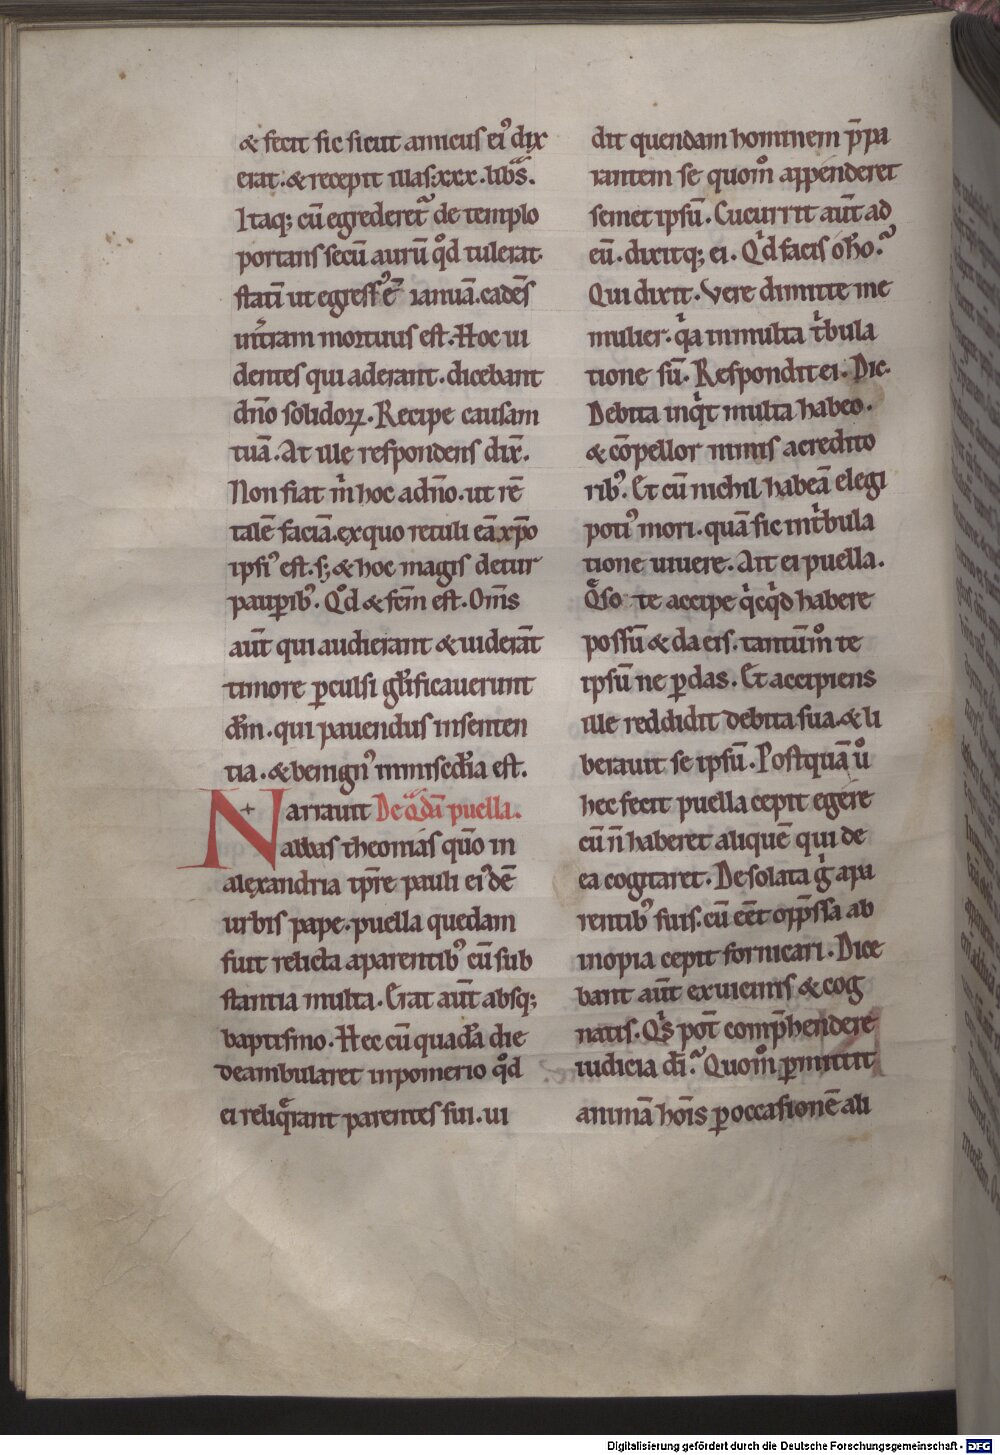 & fecit sic sicut amicus ei᾽ dix
erat. & recepit illas xxx. libͣs.
Itaq; cū egrederet᷑ de templo
portans secū aurū qͦd tulerat.
statī ut egress᾽ ē ianuā. cadēs
int̄ram mortuus est. Hoc ui
dentes qui aderant. dicebant
dn̄o solidoꝝ. Recipe causam
tuā. At ille respondens dix̄.
Non fiat mͥ hoc adn̄o. ut rē
talē faciā. ex quo retuli eā xp̄o
ipsi᾽ est. s; & hoc magis detur
paupib᾽. Qͦd & fc̄m est. Om̄s
aūt qui audierant & uiderāt
timore ꝑculsi gl̄ificauerunt
dm̄. qui pauendus insenten
tia. & benign᾽ inmisedia est.
Narrauit De qͣdā puella.
abbas theonas quō in
alexandria tp̄re pauli ei᾽dē
urbis pape. puella quedam
fuit relicta aparentib᾽ cū sub
stantia multa. Erat aūt absq;
baptismo. Hec cū quadā die
deambularet inpomerio qͦd
ei reliqͤrant parentes sui. ui
dit quendam hominem p̄pa
rantem se quomͦ appenderet
semet ipsū. Cucurrit aūt ad
eū. dixitq; ei. Qͥd facis o hō.
Qui dixit. Vere dimitte me
mulier. qͥa inmulta tͥbula
tione sū. Respondit ei. Dic.
Debita inqͥt multa habeo.
& cōpellor nimis acredito
rib᾽. Et cū nichil habeā elegi
poti᾽ mori. quā sic intͥbula
tione uiuere. Ait ei puella.
Qͤso te accipe qͥcqͥd habere
possū & da eis. tantūmͦ te
ipsū ne ꝑdas. Et accipiens
ille reddidit debita sua. & li
berauit se ipsū. Postquā uͦ
hec fecit puella cepit egere
cū n̄ haberet aliquē qui de
ea cogitaret. Desolata gͥ apa
rentib᾽ suis. cū eēt opp̄ssa ab
inopia cepit fornicari. Dice
bant aūt exuicinis & cog
natis. Qͥs pot̄ comp̄hendere
iudicia dī. Quomͦ ꝑmittit
animā hoīs ꝑoccasionē ali
Digitalisierung gefördert durch die Deutsche Forschungsgemeinschaft - DFG